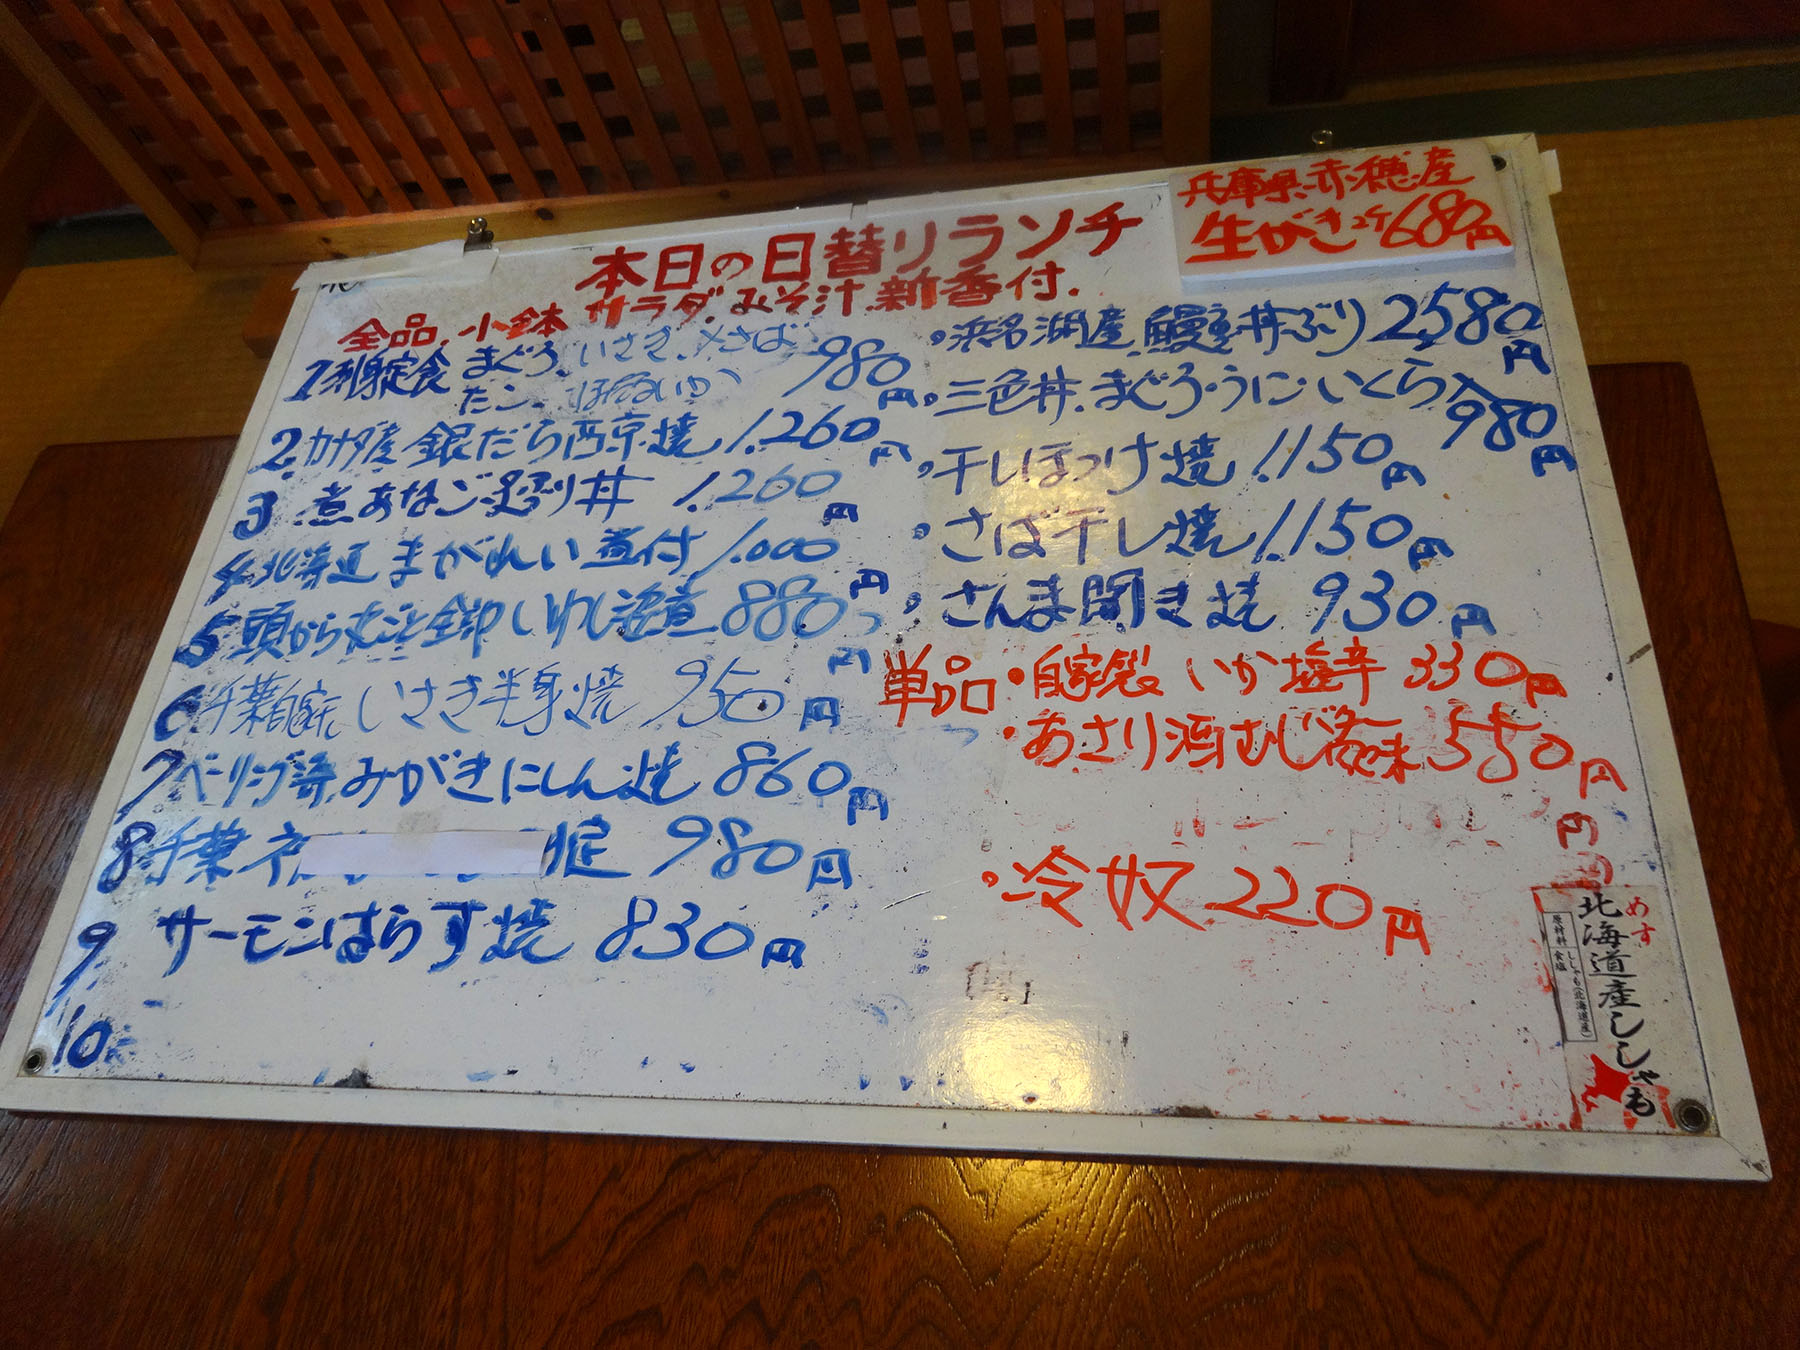 本日の日替りランチ
全品、小鉢 サラダ、みそ汁、新香付.
兵庫県赤穂産
生がき 2ケ 680円
1 刺身定食 まぐろ、いさき、〆さば 980円
たこ、ほたるいか
2. カナダ産 銀だら西京焼 1.260円
3 煮あなご 丼 1.260円
4. 北海道 まがれい煮付 1.000円
5 頭から丸ごと全部いわし 煮 880円
6 千葉 いさき半身焼 950円
7 ベーリング海 みがきにしん焼 860円
8 千葉 定 980円
9 サーモンはらす焼 830円
10
・浜名湖産 鰻 丼ぶり 2580円
・三色丼、まぐろ・うに・いくら入 980円
・干しほっけ焼 1.150円
・さば干し焼 1.150円
・さんま開き焼 930円
単品 ・自家製 いか塩辛 330円
・あさり酒むしバター風味 550円
円
円
・冷奴 220円
めす
北海道産ししゃも
原材料 ししゃも(北海道産)
食塩